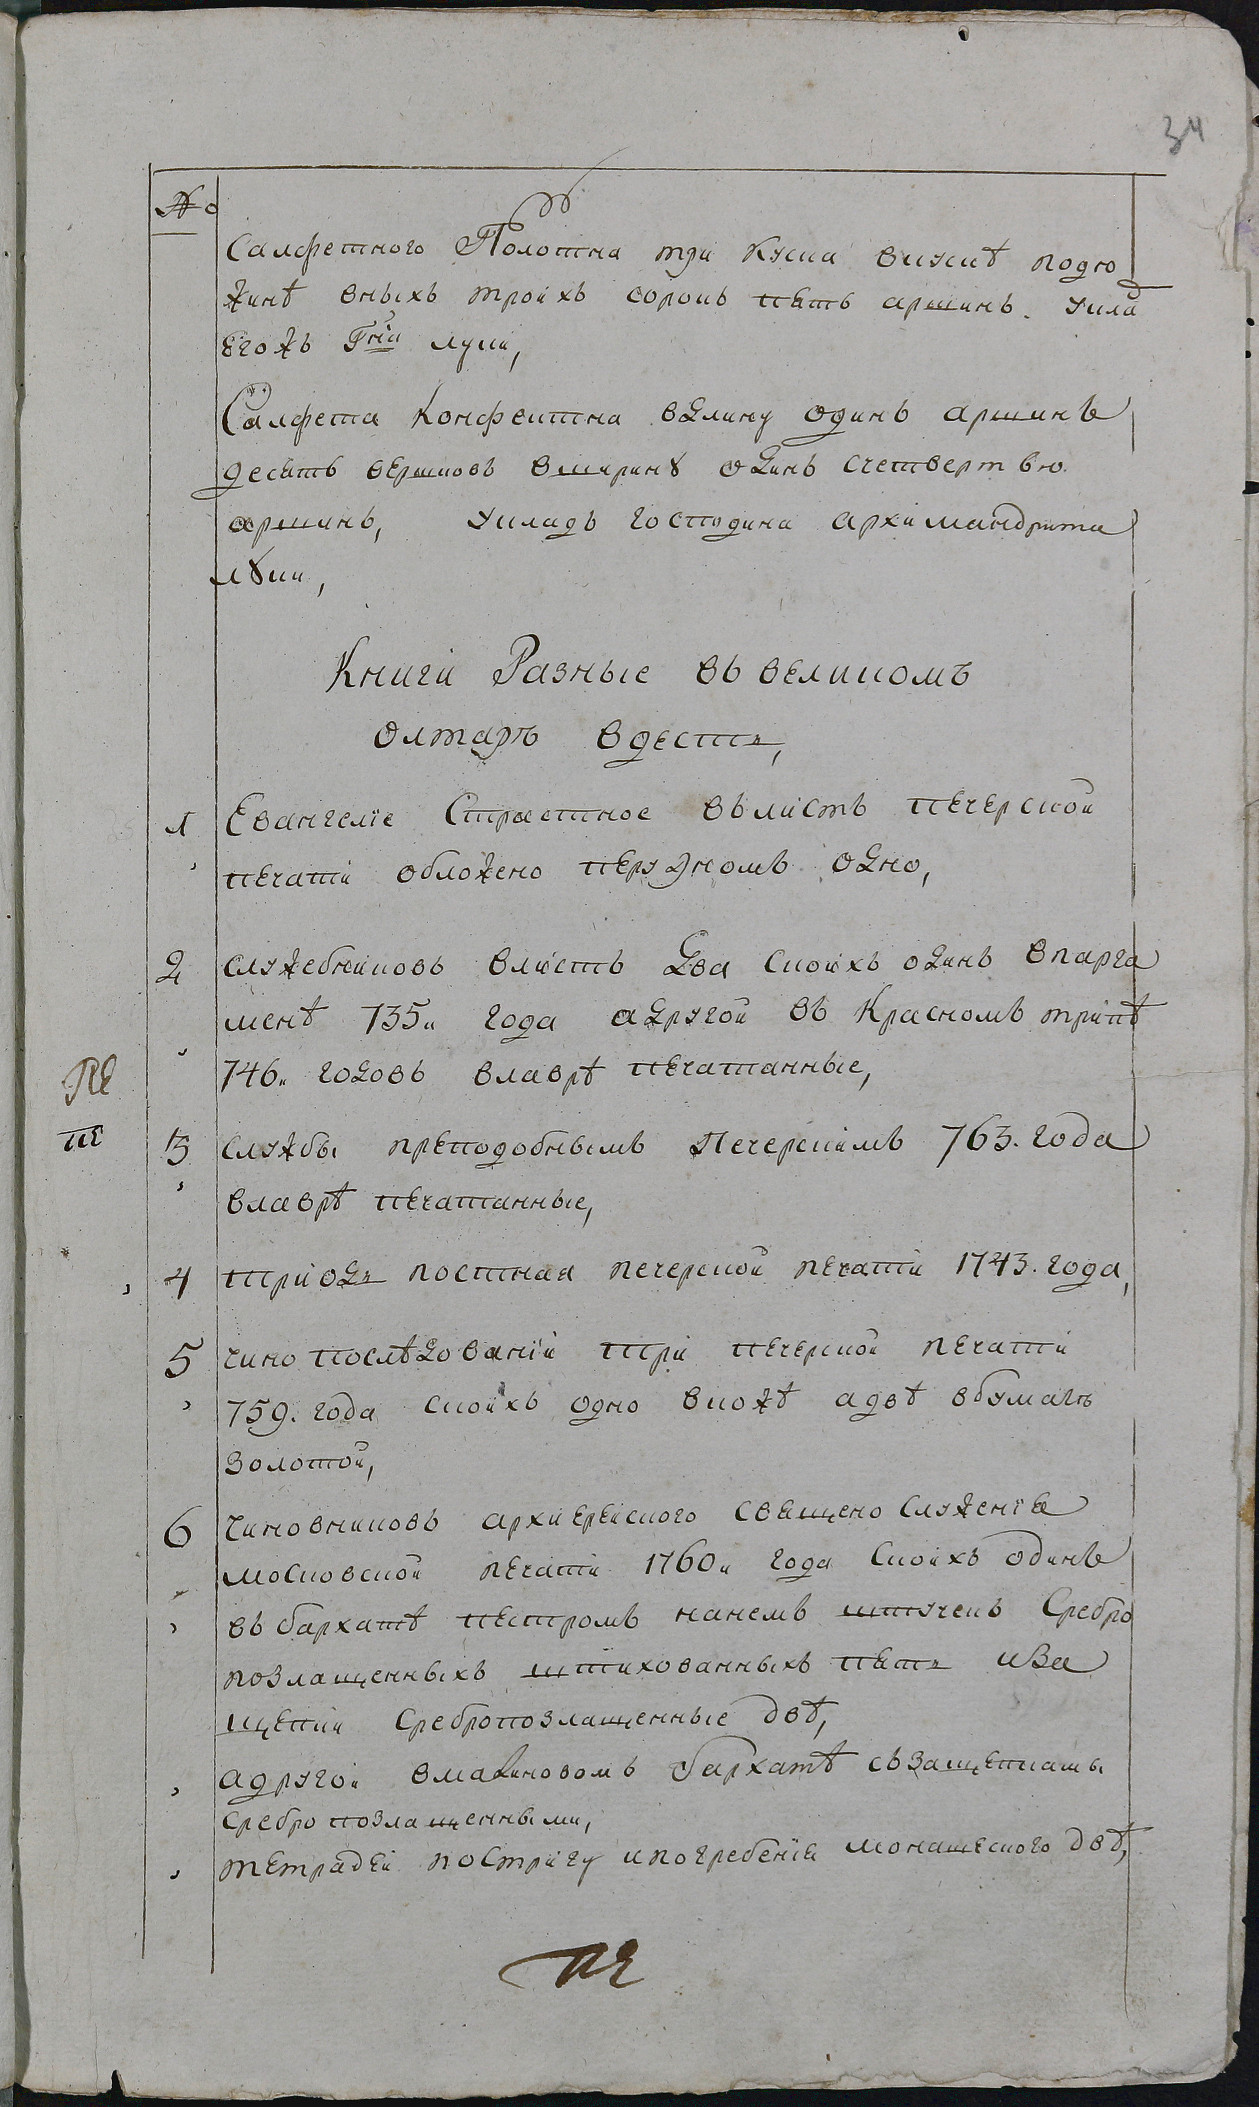 34
№
Салфетного Полотна три куска вкускѣ подю
жинѣ вныхъ троихъ сорокъ пять аршинъ. укла
егожъ Гнй луки,
Салфета Конфектна вдлину одинъ аршинъ
десять вершковъ вширинѣ одинъ счетвертью
аршинъ, укладъ господина архимандрита
луки,
Книги Разные въ великомъ
олтарѣ вдесть,
1 Евангелiе Страстное вълистъ печерской
печати обложено перуономъ одно,
2 служебниковъ влистъ два скоихъ одинъ впарга
менѣ 735и года адругой въ Красномъ трипѣ
746и годовъ влаврѣ печатанные,
ПЕ
пе
3 службы преподобнымъ Печерскимъ 763. года
влаврѣ печатанные,
4 трiодь постная печерской печати 1743. года,
5 чинопослѣдованiй три печерской печати
759. года скоихъ одно вкожѣ адвѣ вбумагѣ
золотой,
6 Чиновниковъ архиерейского священослуженiя
московской печати 1760и года скоихъ одинъ
въ бархатѣ пестромъ нанемъ штучекъ Сребро
позлащенныхъ штихованныхъ пять изa
щепки Сребропозлащенные двѣ,
адругой вмалиновомъ бархатѣ съзащепками
сребропозлащенными,
тетрадей постригу ипогребенiя монашеского двѣ,
ПЕ